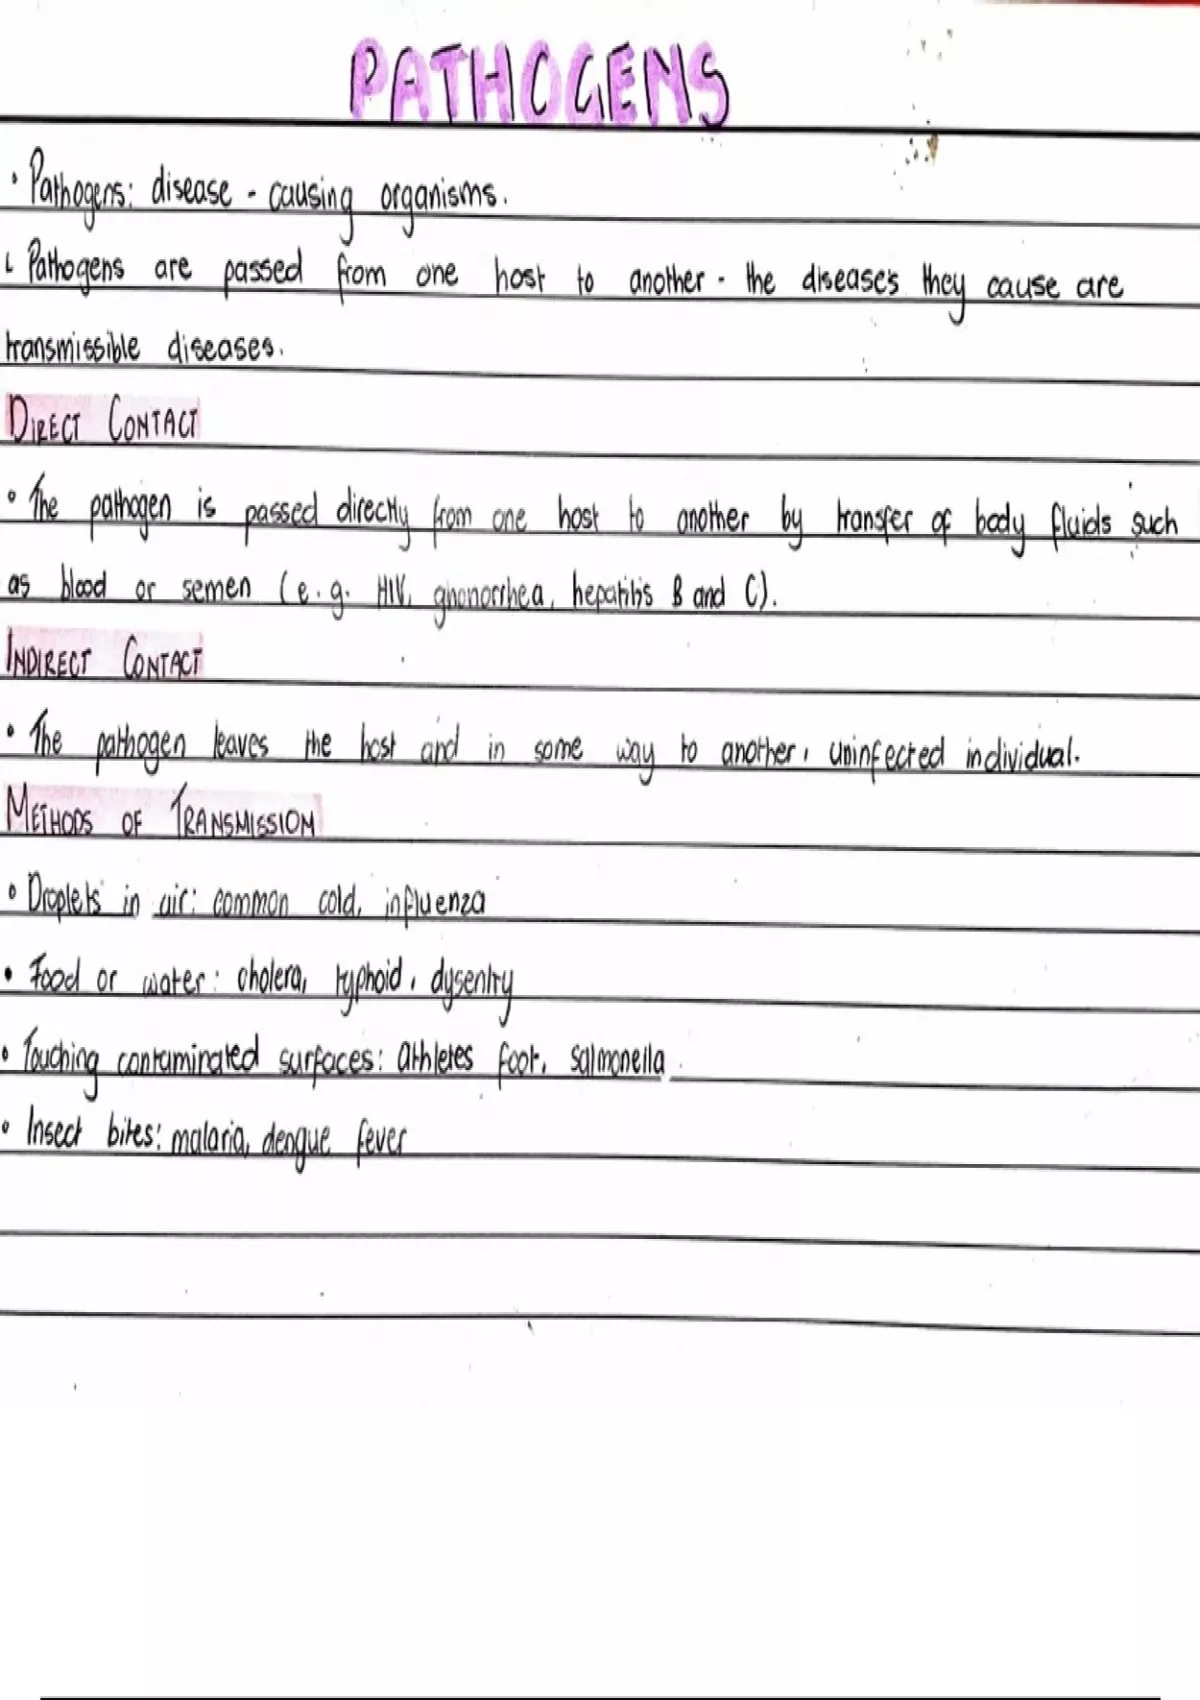 PATHOGENS
• Pathogens: disease - causing organisms.
Pathogens are passed from one host to another - the diseases they cause are
transmissible diseases.
DIRECT CONTACT
• The pathogen is passed directly from one host to another by transfer of body fluids such
as blood or semen (e.g. HIV, ghonorrhea, hepatitis B and C).
INDIRECT CONTACT
• The pathogen leaves the host and in some way to another, uninfected individual.
METHODS OF TRANSMISSION
• Droplets in air: common cold, influenza
• Food or water: cholera, typhoid, dysentry
• Touching contaminated surfaces: athletes foot, salmonella
• Insect bites: malaria, dengue fever